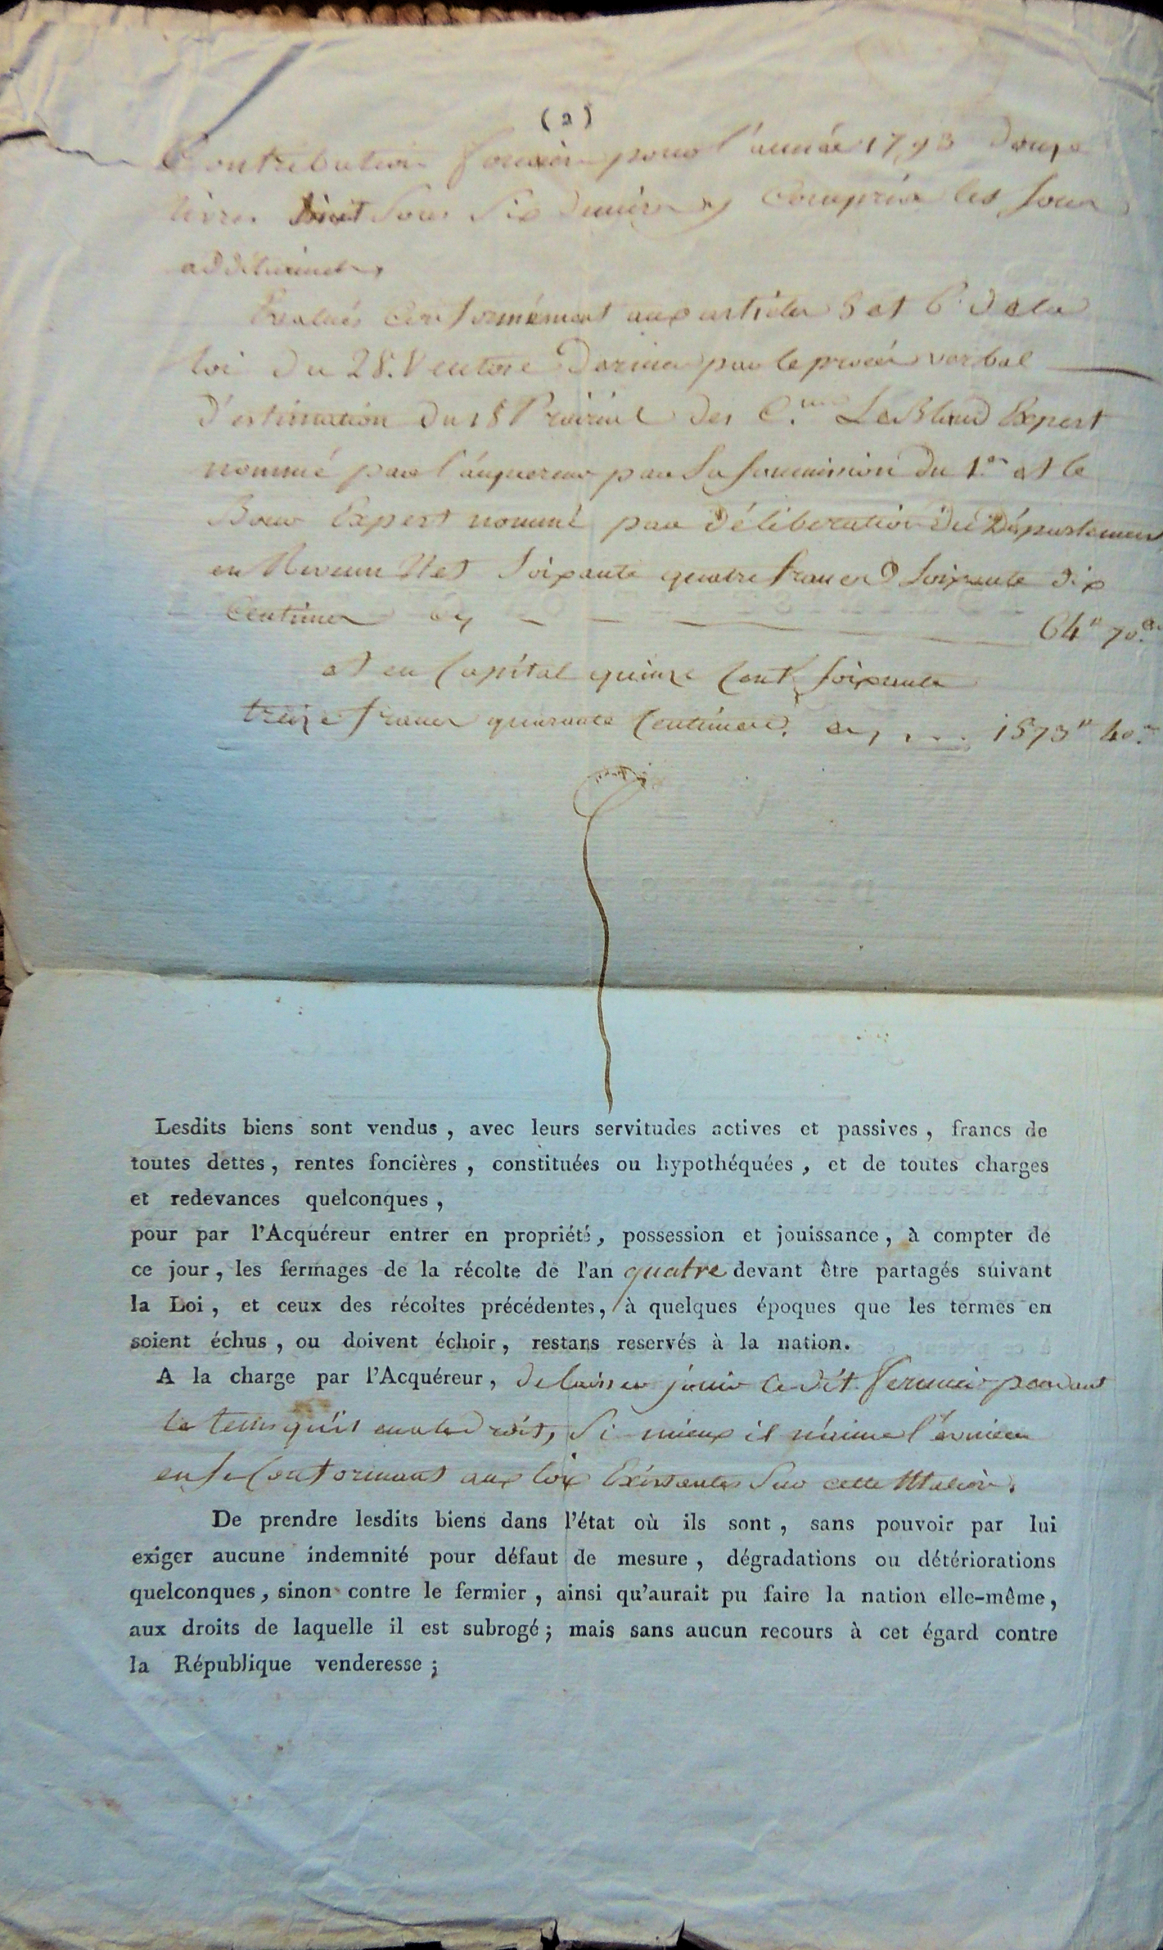 (2)
Contribution foncière pour l'année 1793 douze
livres huit sous six deniers y compris les sous
additionnels,
Évalués conformément aux articles 5 et 6 de la
loi du 28. Ventose dernier par le procès verbal
d'estimation du 18 Prairial des C.ens LeBlond Expert
nommé par l'acquereur par sa soumission du 1.er et le
Expert nommé par délibération du Département
en Revenu Net soixante quatre francs soixante dix
Centimes cy 64" 70.c
et en Capital quinze Cent soixante
treize francs quarante Centimes. cy, ... 1573" 40.c
Lesdits biens sont vendus, avec leurs servitudes actives et passives, francs de
toutes dettes, rentes foncières, constituées ou hypothéquées, et de toutes charges
et redevances quelconques,
pour par l'Acquéreur entrer en propriété, possession et jouissance, à compter de
ce jour, les fermages de la récolte de l'an quatre devant être partagés suivant
la Loi, et ceux des récoltes précédentes, à quelques époques que les termes en
soient échus, ou doivent échoir, restans reservés à la nation.
A la charge par l'Acquéreur, de laisser jouir ledit fermier pendant
le tems qu'il en a le droit, si mieux il n'aime l'évincer
en se Conformant aux loix Existantes sur cette Matière.
De prendre lesdits biens dans l'état où ils sont, sans pouvoir par lui
exiger aucune indemnité pour défaut de mesure, dégradations ou détériorations
quelconques, sinon contre le fermier, ainsi qu'aurait pu faire la nation elle-même,
aux droits de laquelle il est subrogé; mais sans aucun recours à cet égard contre
la République venderesse;